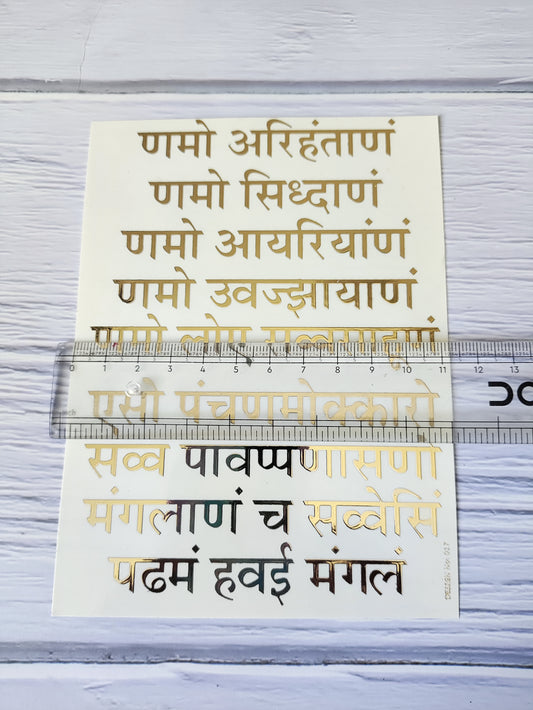 णमो अरिहंताणं
णमो सिध्दाणं
णमो आयरियांणं
णमो उवज्झायाणं
णमो
0 1 2 3 4 5 6 7 8 9 10 11 12 13
एसो पंचणमोक्कारो
सव्व पावप्पणासणो
मंगलाणं च सव्वेसिं
पढमं हवई मंगलं
DESIGN NO. 027